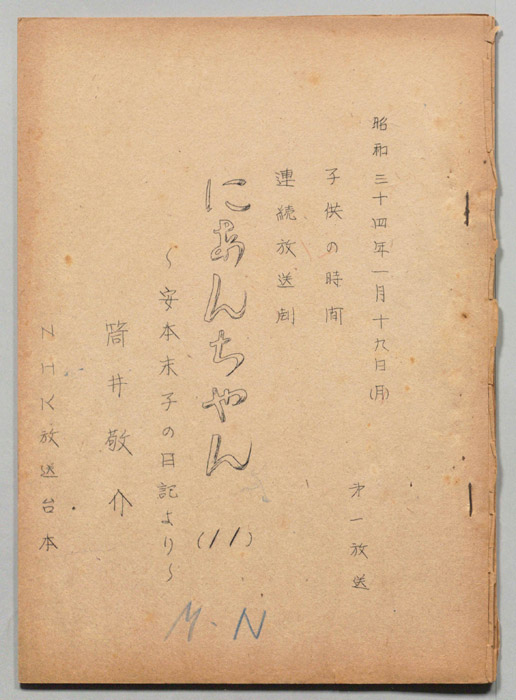 昭和三十四年一月十九日(月)
第一放送
子供の時間
連続放送劇
にあんちゃん(11)
～安本末子の日記より～
筒井敬介
NHK放送台本
M.N